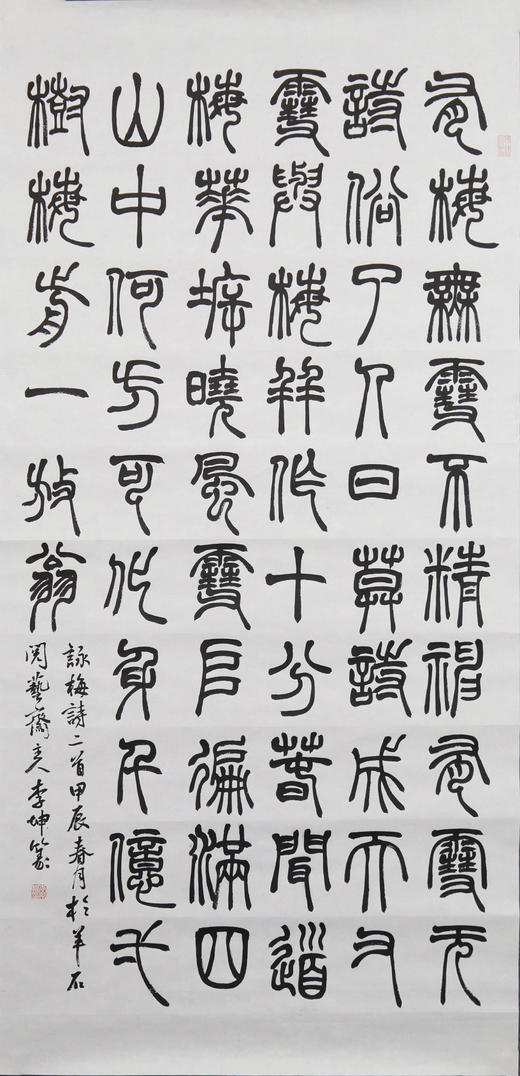 有梅無雪不精神有雪无
詩俗了人日莫詩成天又
雪與梅并作十分春聞道
梅華坼曉風雪堆徧滿四
山中何方可化身千億弌
樹梅前一放翁
詠梅詩二首甲辰春月於羊石
閱藝齋主人李坤篆